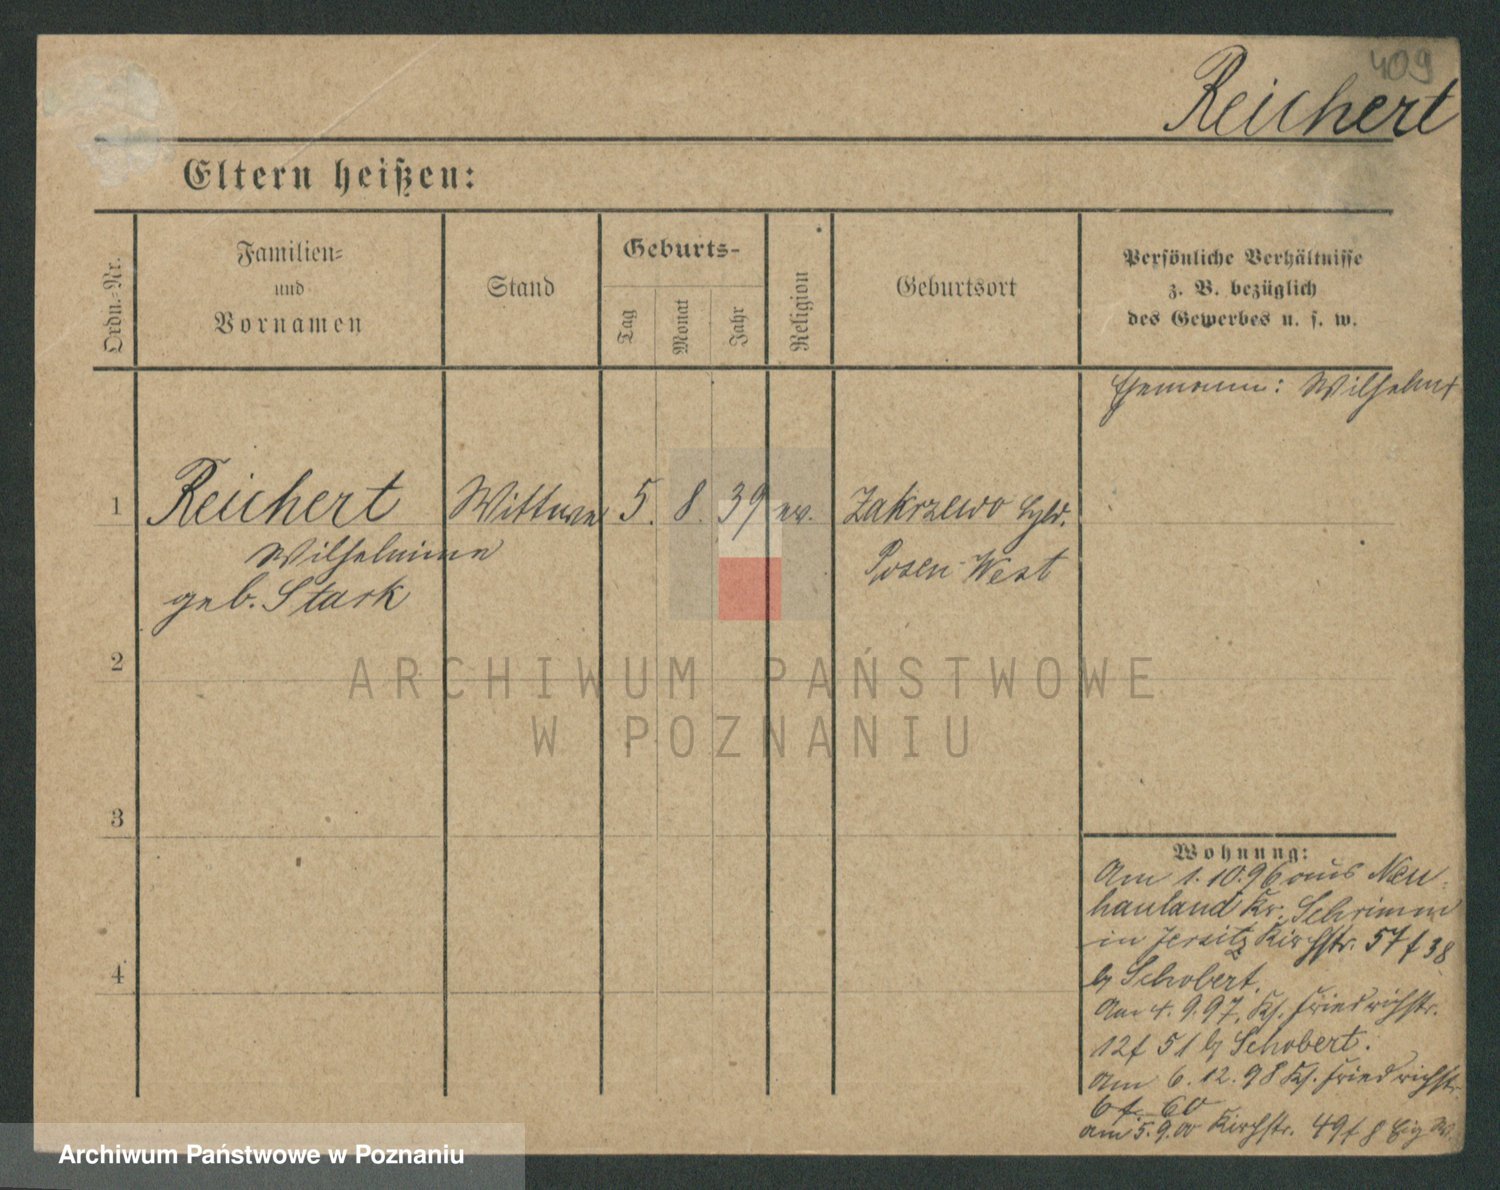 409
Reichert
Eltern heißen:
Ordn.-Nr.
Familien-
und
Vornamen
Stand
Geburts-
Tag
Monat
Jahr
Religion
Geburtsort
Persönliche Verhältnisse
z. B. bezüglich
des Gewerbes u. s. w.
Ehemann: Wilhelm †
1
Reichert Wittwe 5. 8. 39 ev. Zakrzewo
Wilhelmine Posen-West
geb. Stark
2
3
4
Wohnung:
Am 1.10.96 aus Neu-
hauland Kr. Schrimm
in Jersitz Kirchstr. 57 f 38
b/ Schobert.
Am 4.9.97. Friedrichstr.
12 f 51 b/ Schobert.
Am 6.12.98 Friedrichstr.
6 f 60
am 5.9.00 Kirchstr. 49 f 8
ARCHIWUM PAŃSTWOWE
W POZNANIU
Archiwum Państwowe w Poznaniu